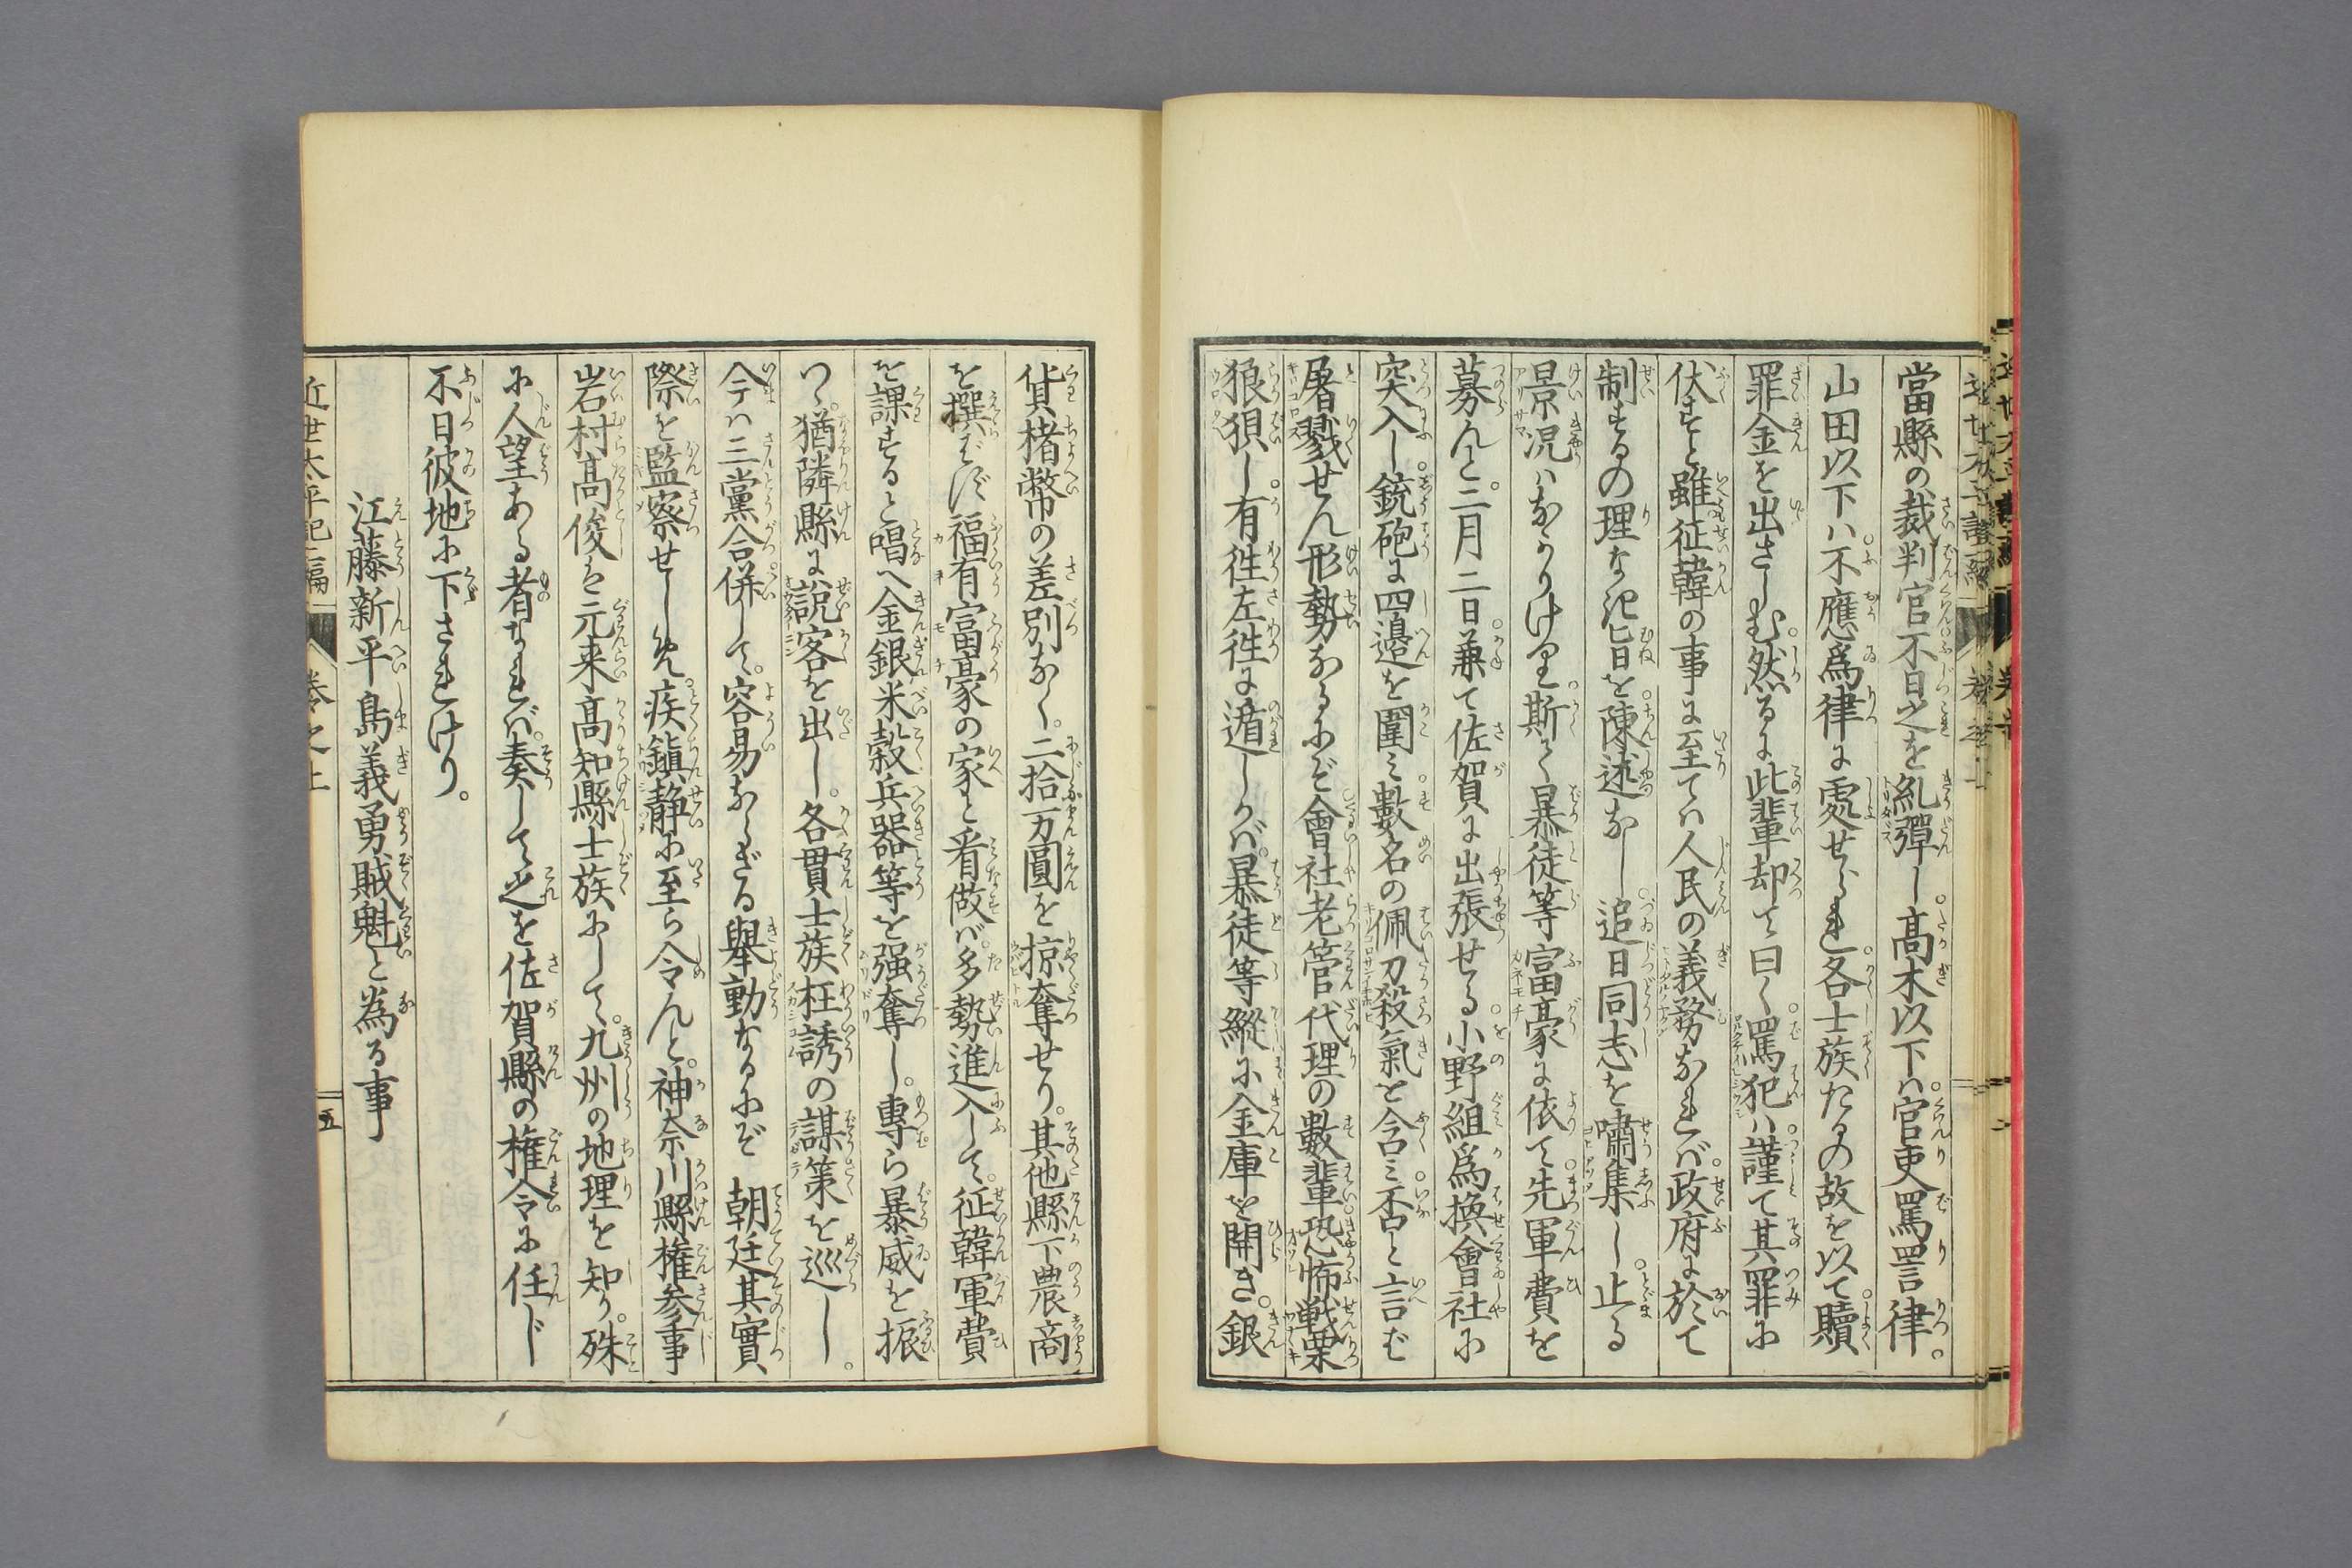 當縣の裁判官不日之を糺彈し。高木以下ハ。官吏罵詈律。
山田以下ハ。不應爲律に處せられ。各士族たるの故を以て。贖
罪金を出さしむ。然るに此輩却て曰く。罵犯ハ。謹て其罪に
伏すと雖征韓の事に至てハ人民の義務なれバ。政府に於て
制するの理なき旨を。陳述なし。追日同志を嘯集し。止る
景況ハなかりけり。斯く暴徒等富豪に依て。先軍費を
募んと。二月二日。兼て佐賀に出張せる。小野組爲換會社に
突入し。銃砲に四邉を圍ミ。數名の佩刀殺氣を含ミ。否と言バ
屠戮せん形勢なるにぞ。會社老管代理の數輩。恐怖戦栗
狼狽し。有徃左徃に遁しかバ。暴徒等縱に金庫を開き。銀
貨楮幣の差別なく。二拾万圓を掠奪せり。其他縣下農商
を撰バず。福有富豪の家と看做バ。多勢進入して。征韓軍費
を課すると唱へ金銀米穀兵器等を强奪し。專ら暴威を振
つゝ。猶隣縣に說客を出し。各貫士族枉誘の謀策を巡し。
今ハ三黨合併して。容易ならざる舉動なるにぞ 朝廷其實
際を監察せしめ。疾鎭静に至ら令んと。神奈川縣権参事
岩村髙俊ハ元来高知縣士族にして。九州の地理を知り。殊
に人望ある者なれバ。奏して之を佐賀縣の権令に任じ
不日彼地に下されけり。
江藤新平島義勇賊魁と為る事
近世太平記二編
卷之上
五